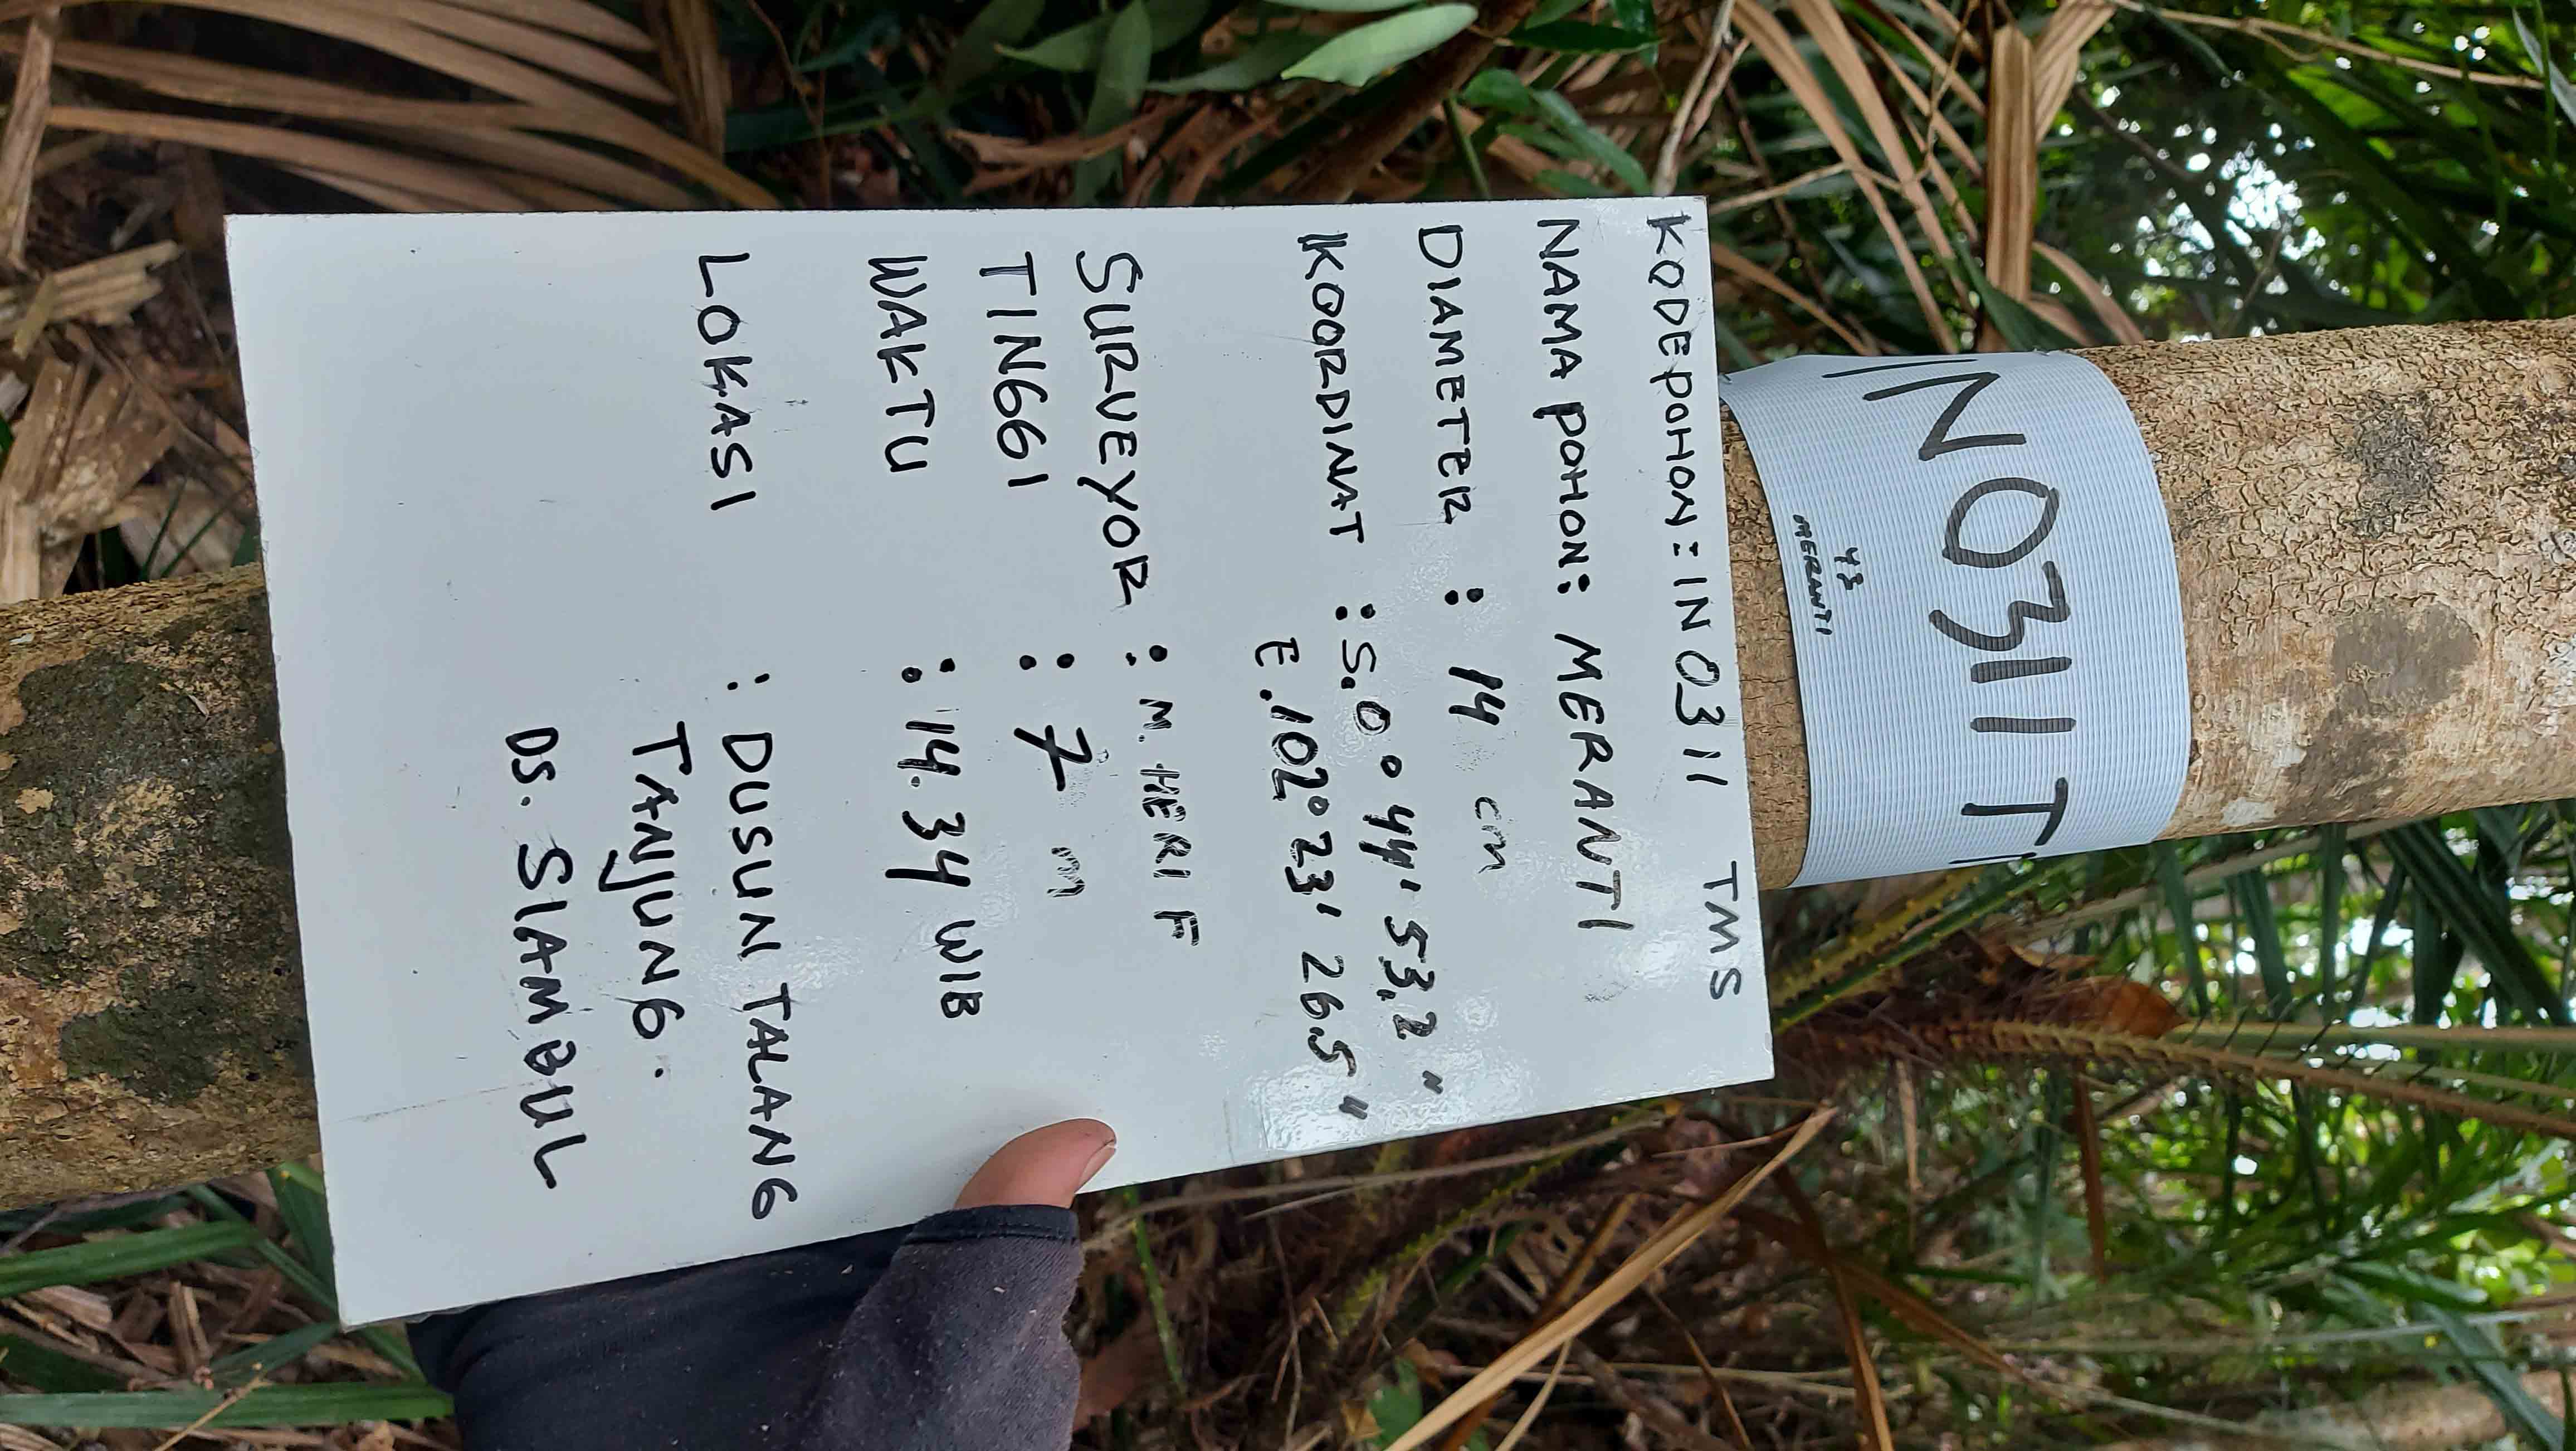 IN0311 T
43
MERANTI
KODE POHON : IN 0311 TMS
NAMA POHON : MERANTI
DIAMETER : 14 cm
KOORDINAT : S.0° 44' 53,2"
E.102° 23' 26.5"
SURVEYOR : M. HERI F
TINGGI : 7 m
WAKTU : 14.34 WIB
LOKASI : DUSUN TALANG
TANJUNG.
DS. SIAMBUL